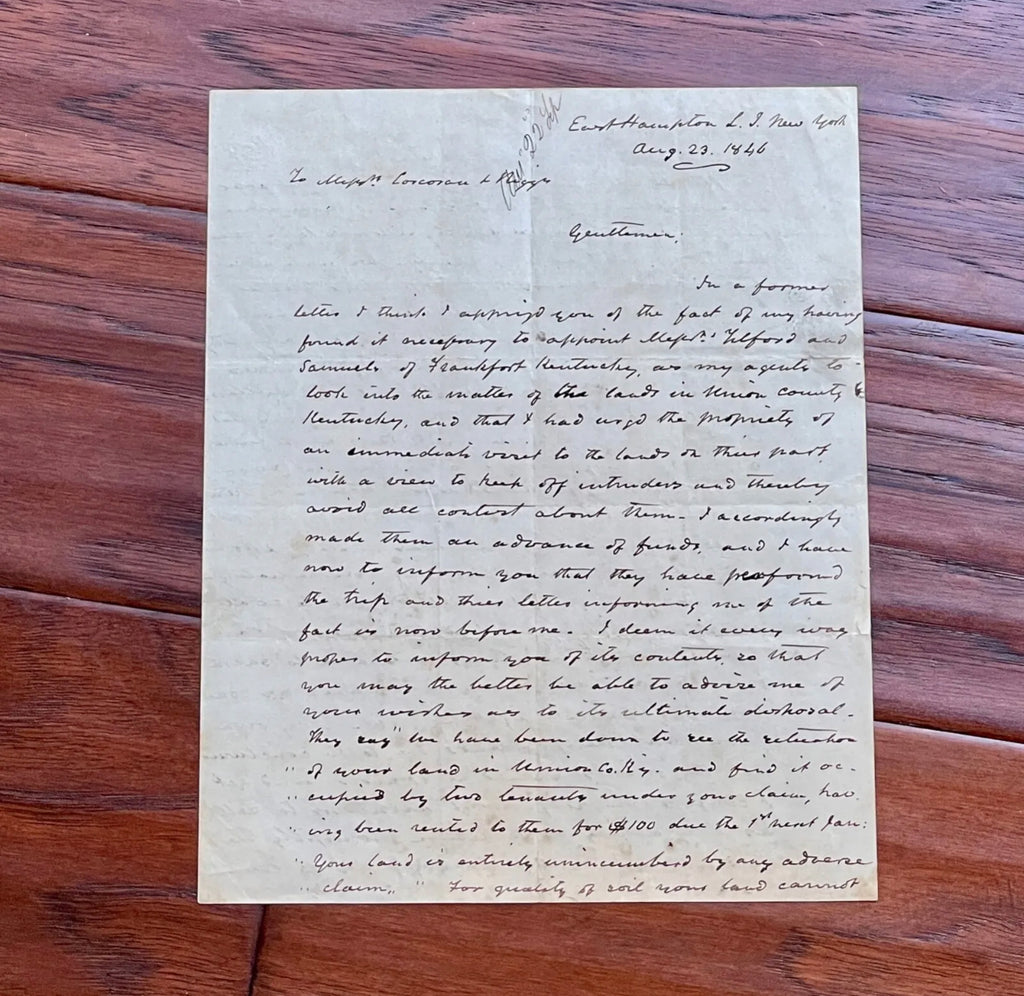 East Hampton L. I. New York
Aug. 23. 1846
To Messrs Corcoran & Riggs
Gentlemen;
In a former
letter I think I apprizd you of the fact of my having
found it necessary to appoint Messrs. Tilford and
Samuels of Frankfort Kentucky, as my agents to
look into the matter of the lands in Union County
Kentucky, and that I had urgd the propriety of
an immediate visit to the lands on their part,
with a view to keep off intruders and thereby
avoid all contest about them - I accordingly
made them an advance of funds, and I have
now to inform you that they have performd
the trip and their letter informing me of the
fact is now before me - I deem it every way
proper to inform you of its contents, so that
you may the better be able to advise me of
your wishes as to its ultimate disposal -
They say "We have been down to see the situation
" of your land in Union Co. Ky. and find it oc-
" cupied by two tenants under your claim, hav-
" ing been rented to them for $100 due the 1st next Jan:
" Your land is entirely unincumberd by any adverse
" claim," " For quality of soil your land cannot